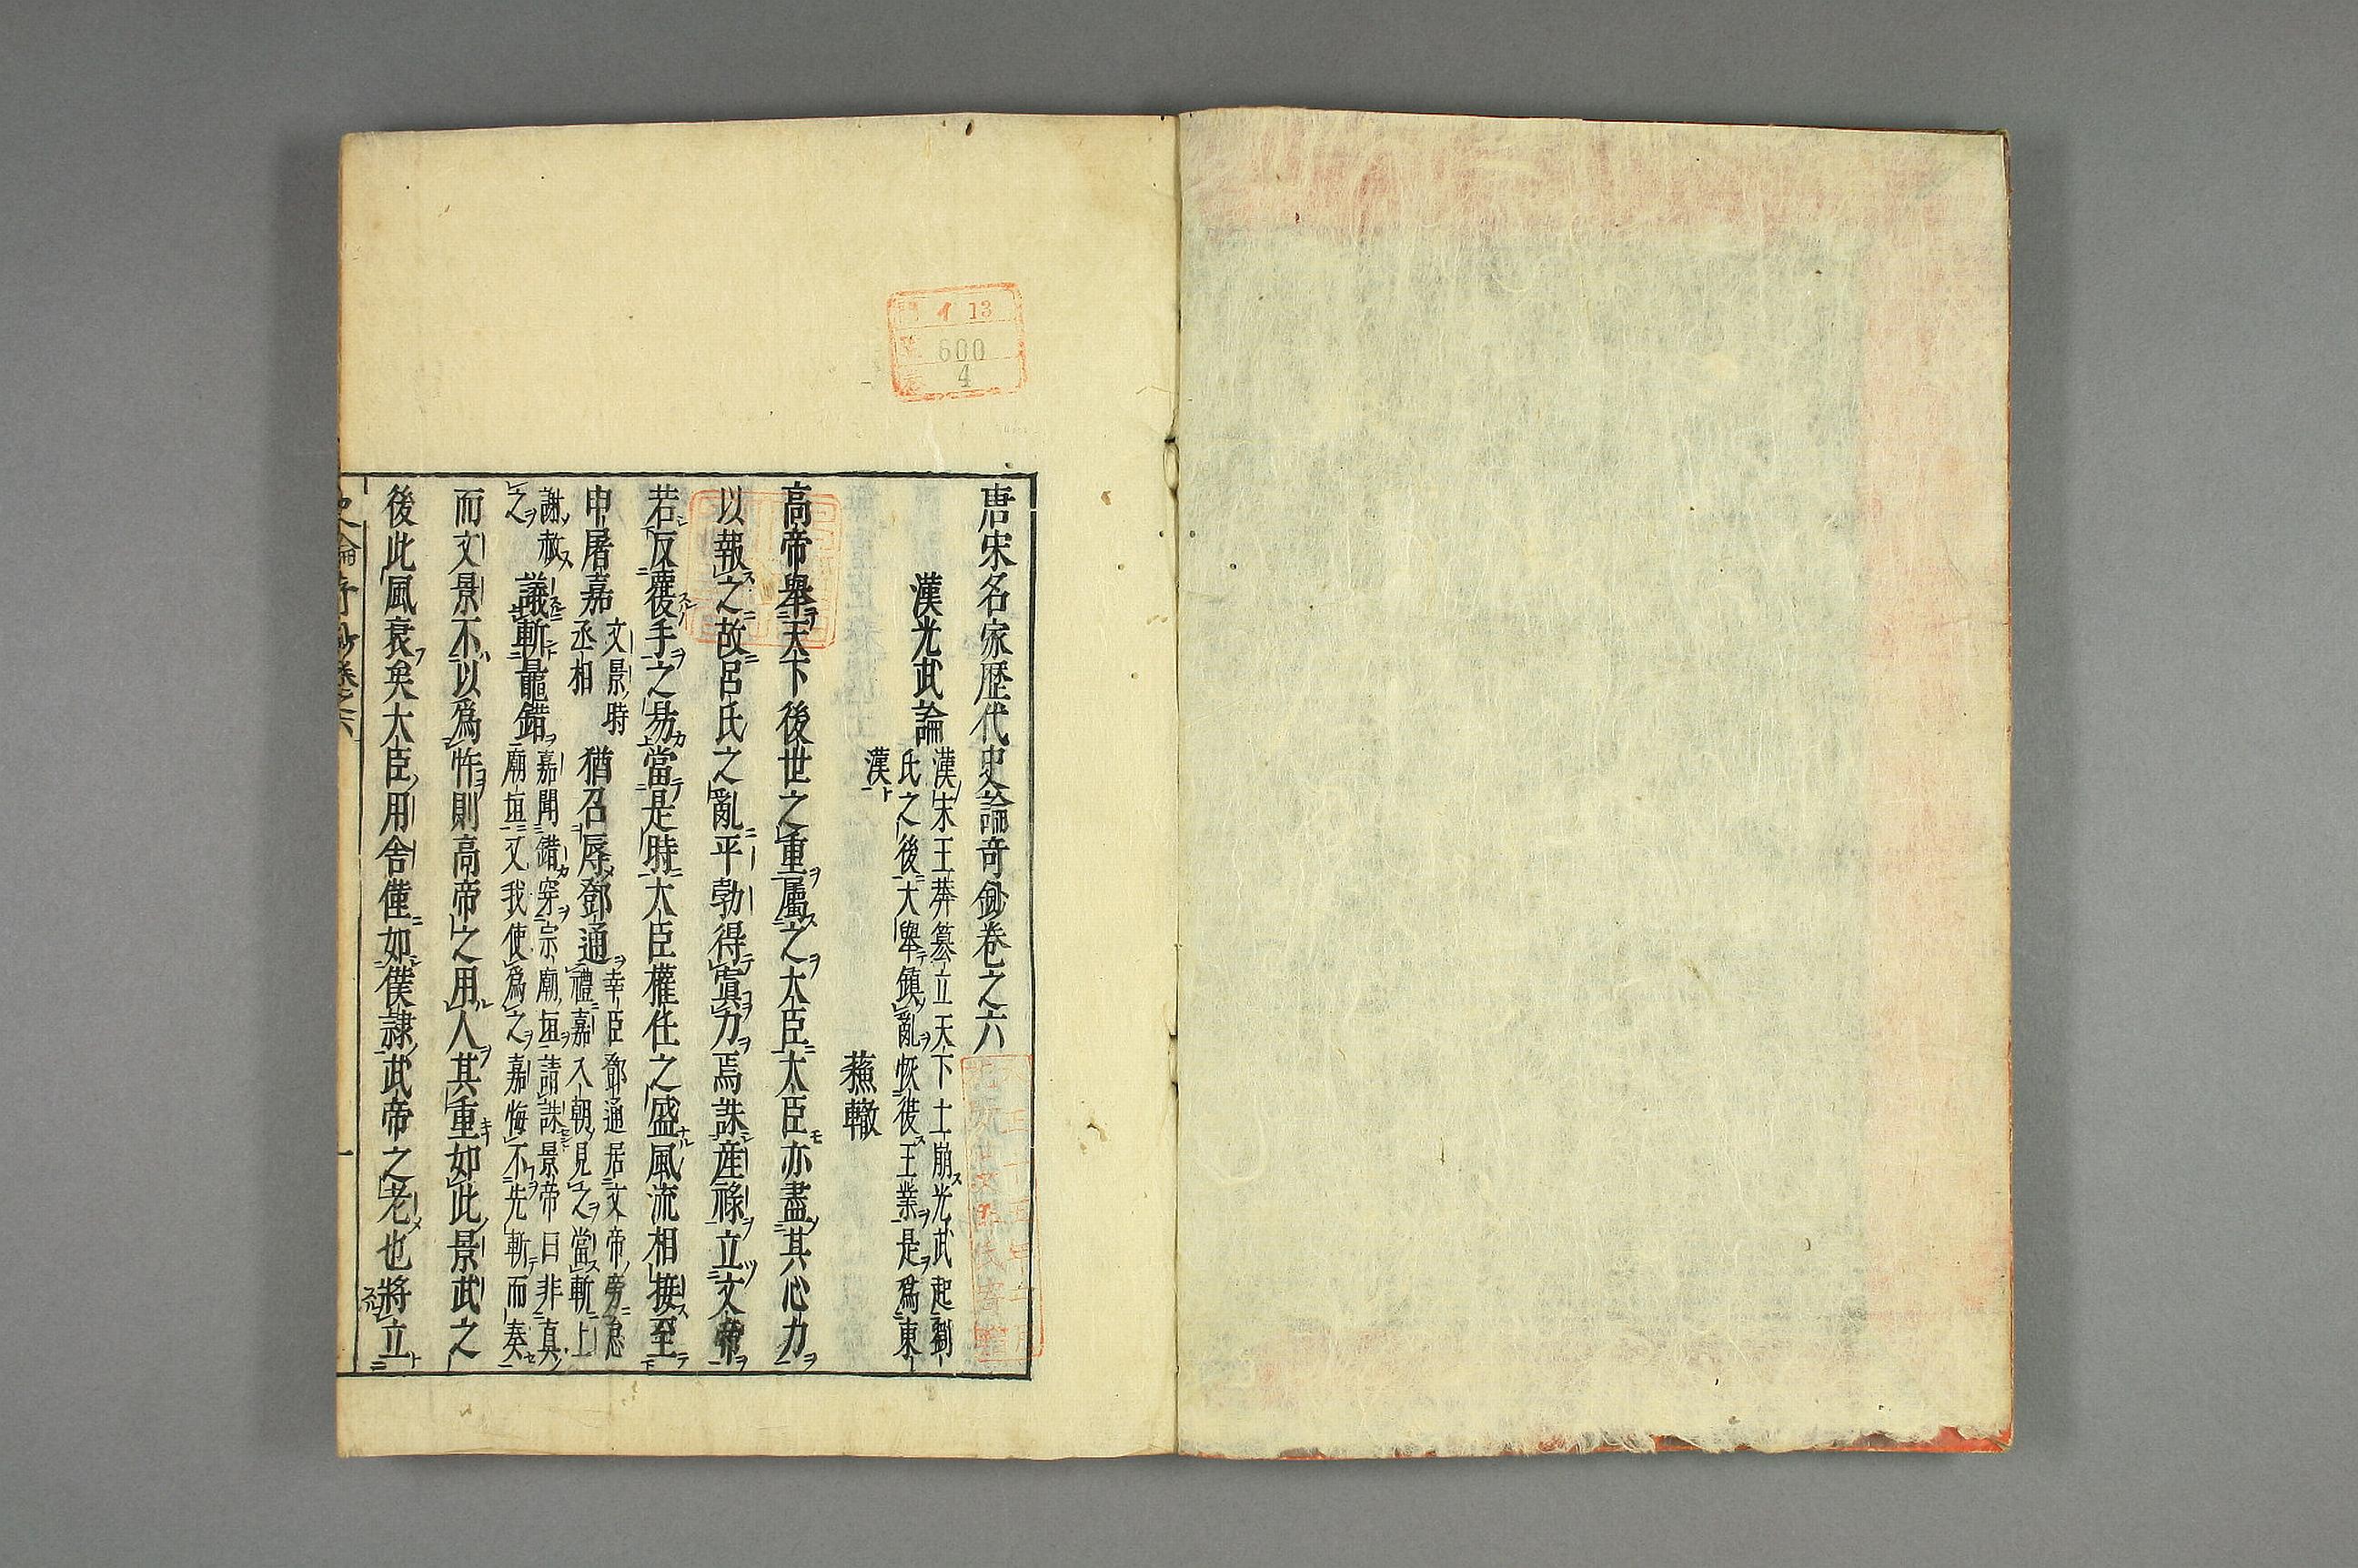 イ 13
600
4
唐宋名家歴代史論奇鈔卷之六
漢光武論
漢宋王莽篡立天下土崩光武起劉
氏之後大舉鎮亂恢彼王業是爲東
漢
蘓轍
高帝舉天下後世之重屬之大臣大臣亦盡其心力
以報之故呂氏之亂平勃得寘力焉誅産祿立文帝
若反覆手之易當是時大臣權任之盛風流相接至
申屠嘉
文景時
丞相
猶召辱鄧通
幸臣鄧通居文帝旁怠
禮嘉入朝見之當斬上
謝赦
之
議斬鼂錯
嘉聞錯穿宗廟垣請誅景帝曰非真
廟垣又我使爲之嘉悔不先斬而奏
而文景不以爲怍則高帝之用人其重如此景武之
後此風衰矣大臣用舍僅如僕隷武帝之老也將立
史論奇鈔卷之六
一